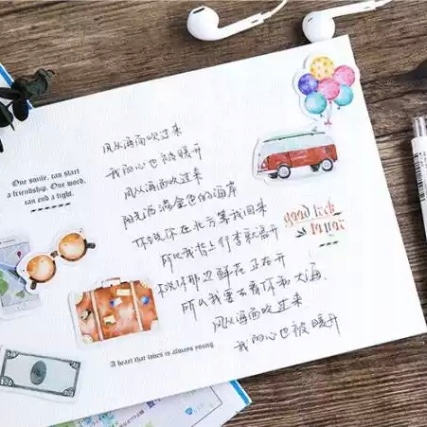 风从海面吹过来
我的心也被暖开
风从海面吹过来
阳光洒满金色的海岸
你说你在北方等我回来
所以我背上行李就离开
你说那边鲜花正在开
所以我要去看你和大海
风从海面吹过来
我的心也被暖开
One smile, can start
a friendship. One word,
can end a fight.
good luck
A heart that loves is always young